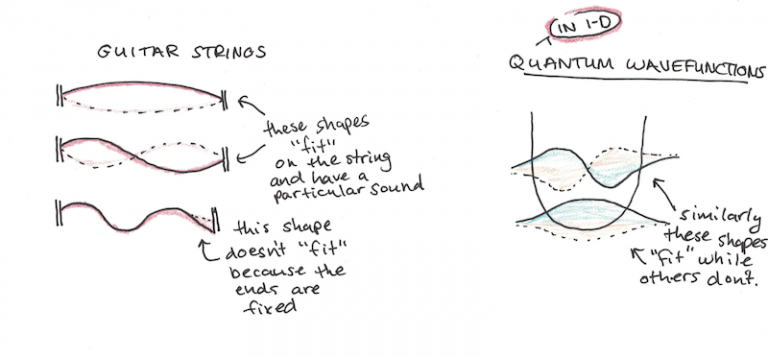 GUITAR STRINGS
these shapes
"fit"
on the string
and have a
particular sound
this shape
doesn't "fit"
because the
ends are
fixed
IN 1-D
QUANTUM WAVEFUNCTIONS
similarly
these shapes
"fit" while
others don't.